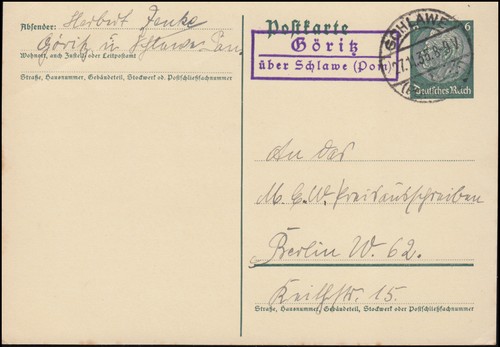 Absender: Herbert
Göritz ü. Schlawe Pom
Wohnort, auch Zustell- oder Leitpostamt
Straße, Hausnummer, Gebäudeteil, Stockwerk od. Postschließfachnummer
Postkarte
Göritz
über Schlawe (Pom)
SCHLAWE
6
Deutsches Reich
An das
M. E. W. Preisausschreiben
Berlin W. 62.
Keithstr. 15.
Straße, Hausnummer, Gebäudeteil, Stockwerk oder Postschließfachnummer